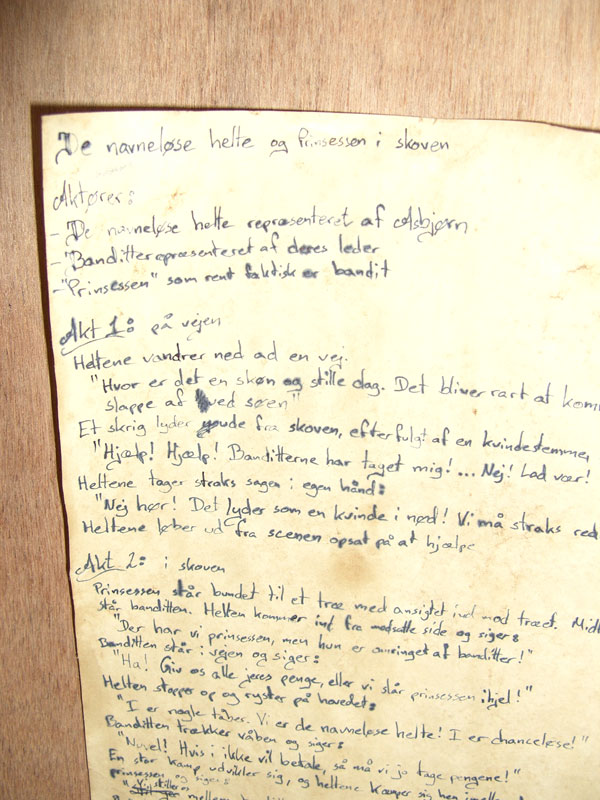 De navneløse helte og Prinsessen i skoven
Aktører:
- De navneløse helte repræsenteret af Asbjørn
- Banditter repræsenteret af deres leder
- "Prinsessen" som rent faktisk er bandit
Akt 1: på vejen
Heltene vandrer ned ad en vej.
"Hvor er det en skøn og stille dag. Det bliver rart at
slappe af ved søen"
Et skrig lyder fra skoven, efterfulgt af en kvindestemme,
"Hjælp! Hjælp! Banditterne har taget mig!... Nej! Lad vær!
Heltene tager straks sagen i egen hånd:
"Nej hør! Det lyder som en kvinde i nød! Vi må straks red
Heltene løber ud fra scenen opsat på at hjælpe
Akt 2: i skoven
Prinsessen står bundet til et træ med ansigtet ind mod træet.
står banditten. Helten kommer ind fra modsatte side og siger:
"Der har vi prinsessen, men hun er omringet af banditter!"
Banditten står i vejen og siger:
"Ha! Giv os alle jeres penge, eller vi slår prinsessen ihjel!"
Helten stopper op og ryster på hovedet:
"I er nogle tåber. Vi er de navneløse helte! I er chanceløse!"
Banditten trækker våben og siger:
"Nuvel! Hvis i ikke vil betale, så må vi jo tage pengene!"
En stor kamp udvikler sig, og heltene kæmper sig hen
prinsessen og siger: